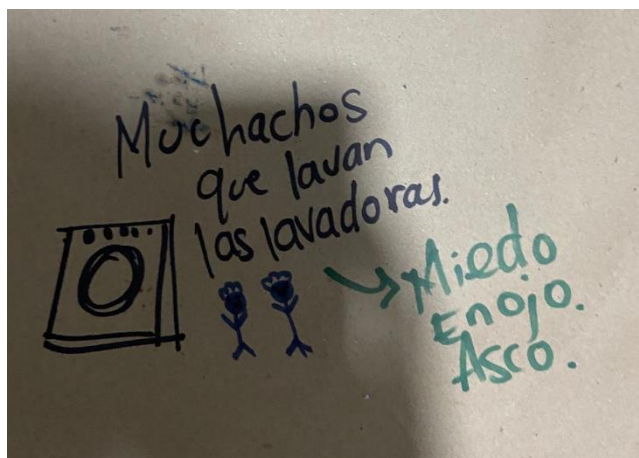 Muchachos
que lavan
las lavadoras.
Miedo
Enojo.
Asco.